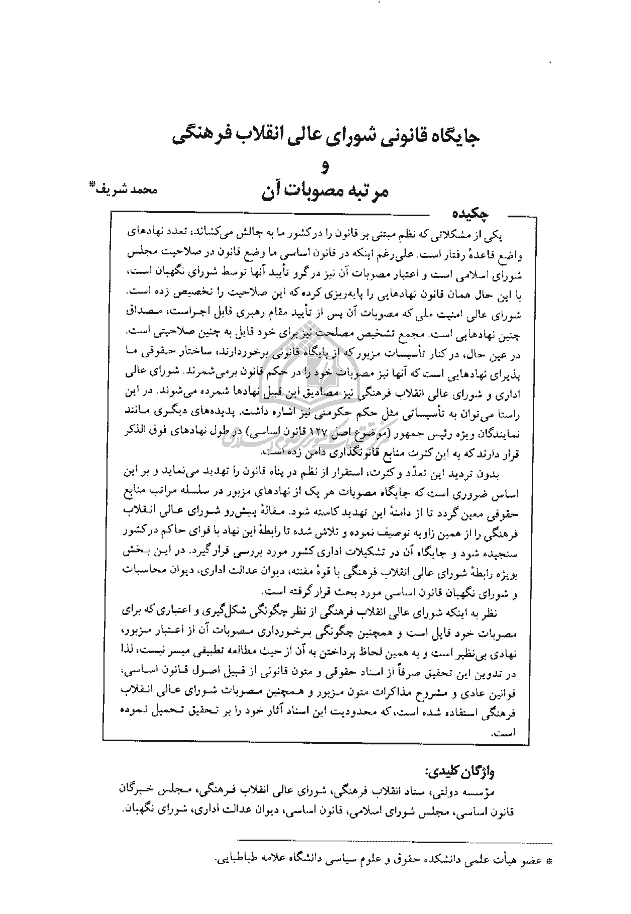 جایگاه قانونی شورای عالی انقلاب فرهنگی
و
مرتبه مصوبات آن
محمد شریف*
چکیده
یکی از مشکلاتی که نظم مبتنی بر قانون را در کشور ما به چالش می‌کشاند، تعدد نهادهای
واضع قاعدهٔ رفتار است. علی‌رغم اینکه در قانون اساسی ما وضع قانون در صلاحیت مجلس
شورای اسلامی است و اعتبار مصوبات آن نیز در گرو تأیید آنها توسط شورای نگهبان است،
با این حال همان قانون نهادهایی را پایه‌ریزی کرده که این صلاحیت را تخصیص زده است.
شورای عالی امنیت ملی که مصوبات آن پس از تأیید مقام رهبری قابل اجراست، مصداق
چنین نهادهایی است. مجمع تشخیص مصلحت نیز برای خود قایل به چنین صلاحیتی است.
در عین حال، در کنار تأسیسات مزبور که از پایگاه قانونی برخوردارند، ساختار حقوقی ما
پذیرای نهادهایی است که آنها نیز مصوبات خود را در حکم قانون برمی‌شمرند. شورای عالی
اداری و شورای عالی انقلاب فرهنگی نیز مصادیق این قبیل نهادها شمرده می‌شوند. در این
راستا می‌توان به تأسیساتی مثل حکم حکومتی نیز اشاره داشت. پدیده‌های دیگری مانند
نمایندگان ویژه رئیس جمهور (موضوع اصل ۱۲۷ قانون اساسی) در طول نهادهای فوق الذکر
قرار دارند که به این کثرت منابع قانونگذاری دامن زده است.
بدون تردید این تعدّد و کثرت، استقرار از نظم در پناه قانون را تهدید می‌نماید و بر این
اساس ضروری است که جایگاه مصوبات هر یک از نهادهای مزبور در سلسله مراتب منابع
حقوقی معین گردد تا از دامنهٔ این تهدید کاسته شود. مقالهٔ پیش‌رو شورای عالی انقلاب
فرهنگی را از همین زاویه توصیف نموده و تلاش شده تا رابطهٔ این نهاد با قوای حاکم در کشور
سنجیده شود و جایگاه آن در تشکیلات اداری کشور مورد بررسی قرار گیرد. در این بخش
بویژه رابطهٔ شورای عالی انقلاب فرهنگی با قوهٔ مقننه، دیوان عدالت اداری، دیوان محاسبات
و شورای نگهبان قانون اساسی مورد بحث قرار گرفته است.
نظر به اینکه شورای عالی انقلاب فرهنگی از نظر چگونگی شکل‌گیری و اعتباری که برای
مصوبات خود قایل است و همچنین چگونگی برخورداری مصوبات آن از اعتبار مزبور،
نهادی بی‌نظیر است و به همین لحاظ پرداختن به آن از حیث مطالعه تطبیقی میسر نیست، لذا
در تدوین این تحقیق صرفاً از اسناد حقوقی و متون قانونی از قبیل اصول قانون اساسی،
قوانین عادی و مشروح مذاکرات متون مزبور و همچنین مصوبات شورای عالی انقلاب
فرهنگی استفاده شده است، که محدودیت این اسناد آثار خود را بر تحقیق تحمیل نموده
است.
واژگان کلیدی:
مؤسسه دولتی، ستاد انقلاب فرهنگی، شورای عالی انقلاب فرهنگی، مجلس خبرگان
قانون اساسی، مجلس شورای اسلامی، قانون اساسی، دیوان عدالت اداری، شورای نگهبان.
* عضو هیأت علمی دانشکده حقوق و علوم سیاسی دانشگاه علامه طباطبایی.